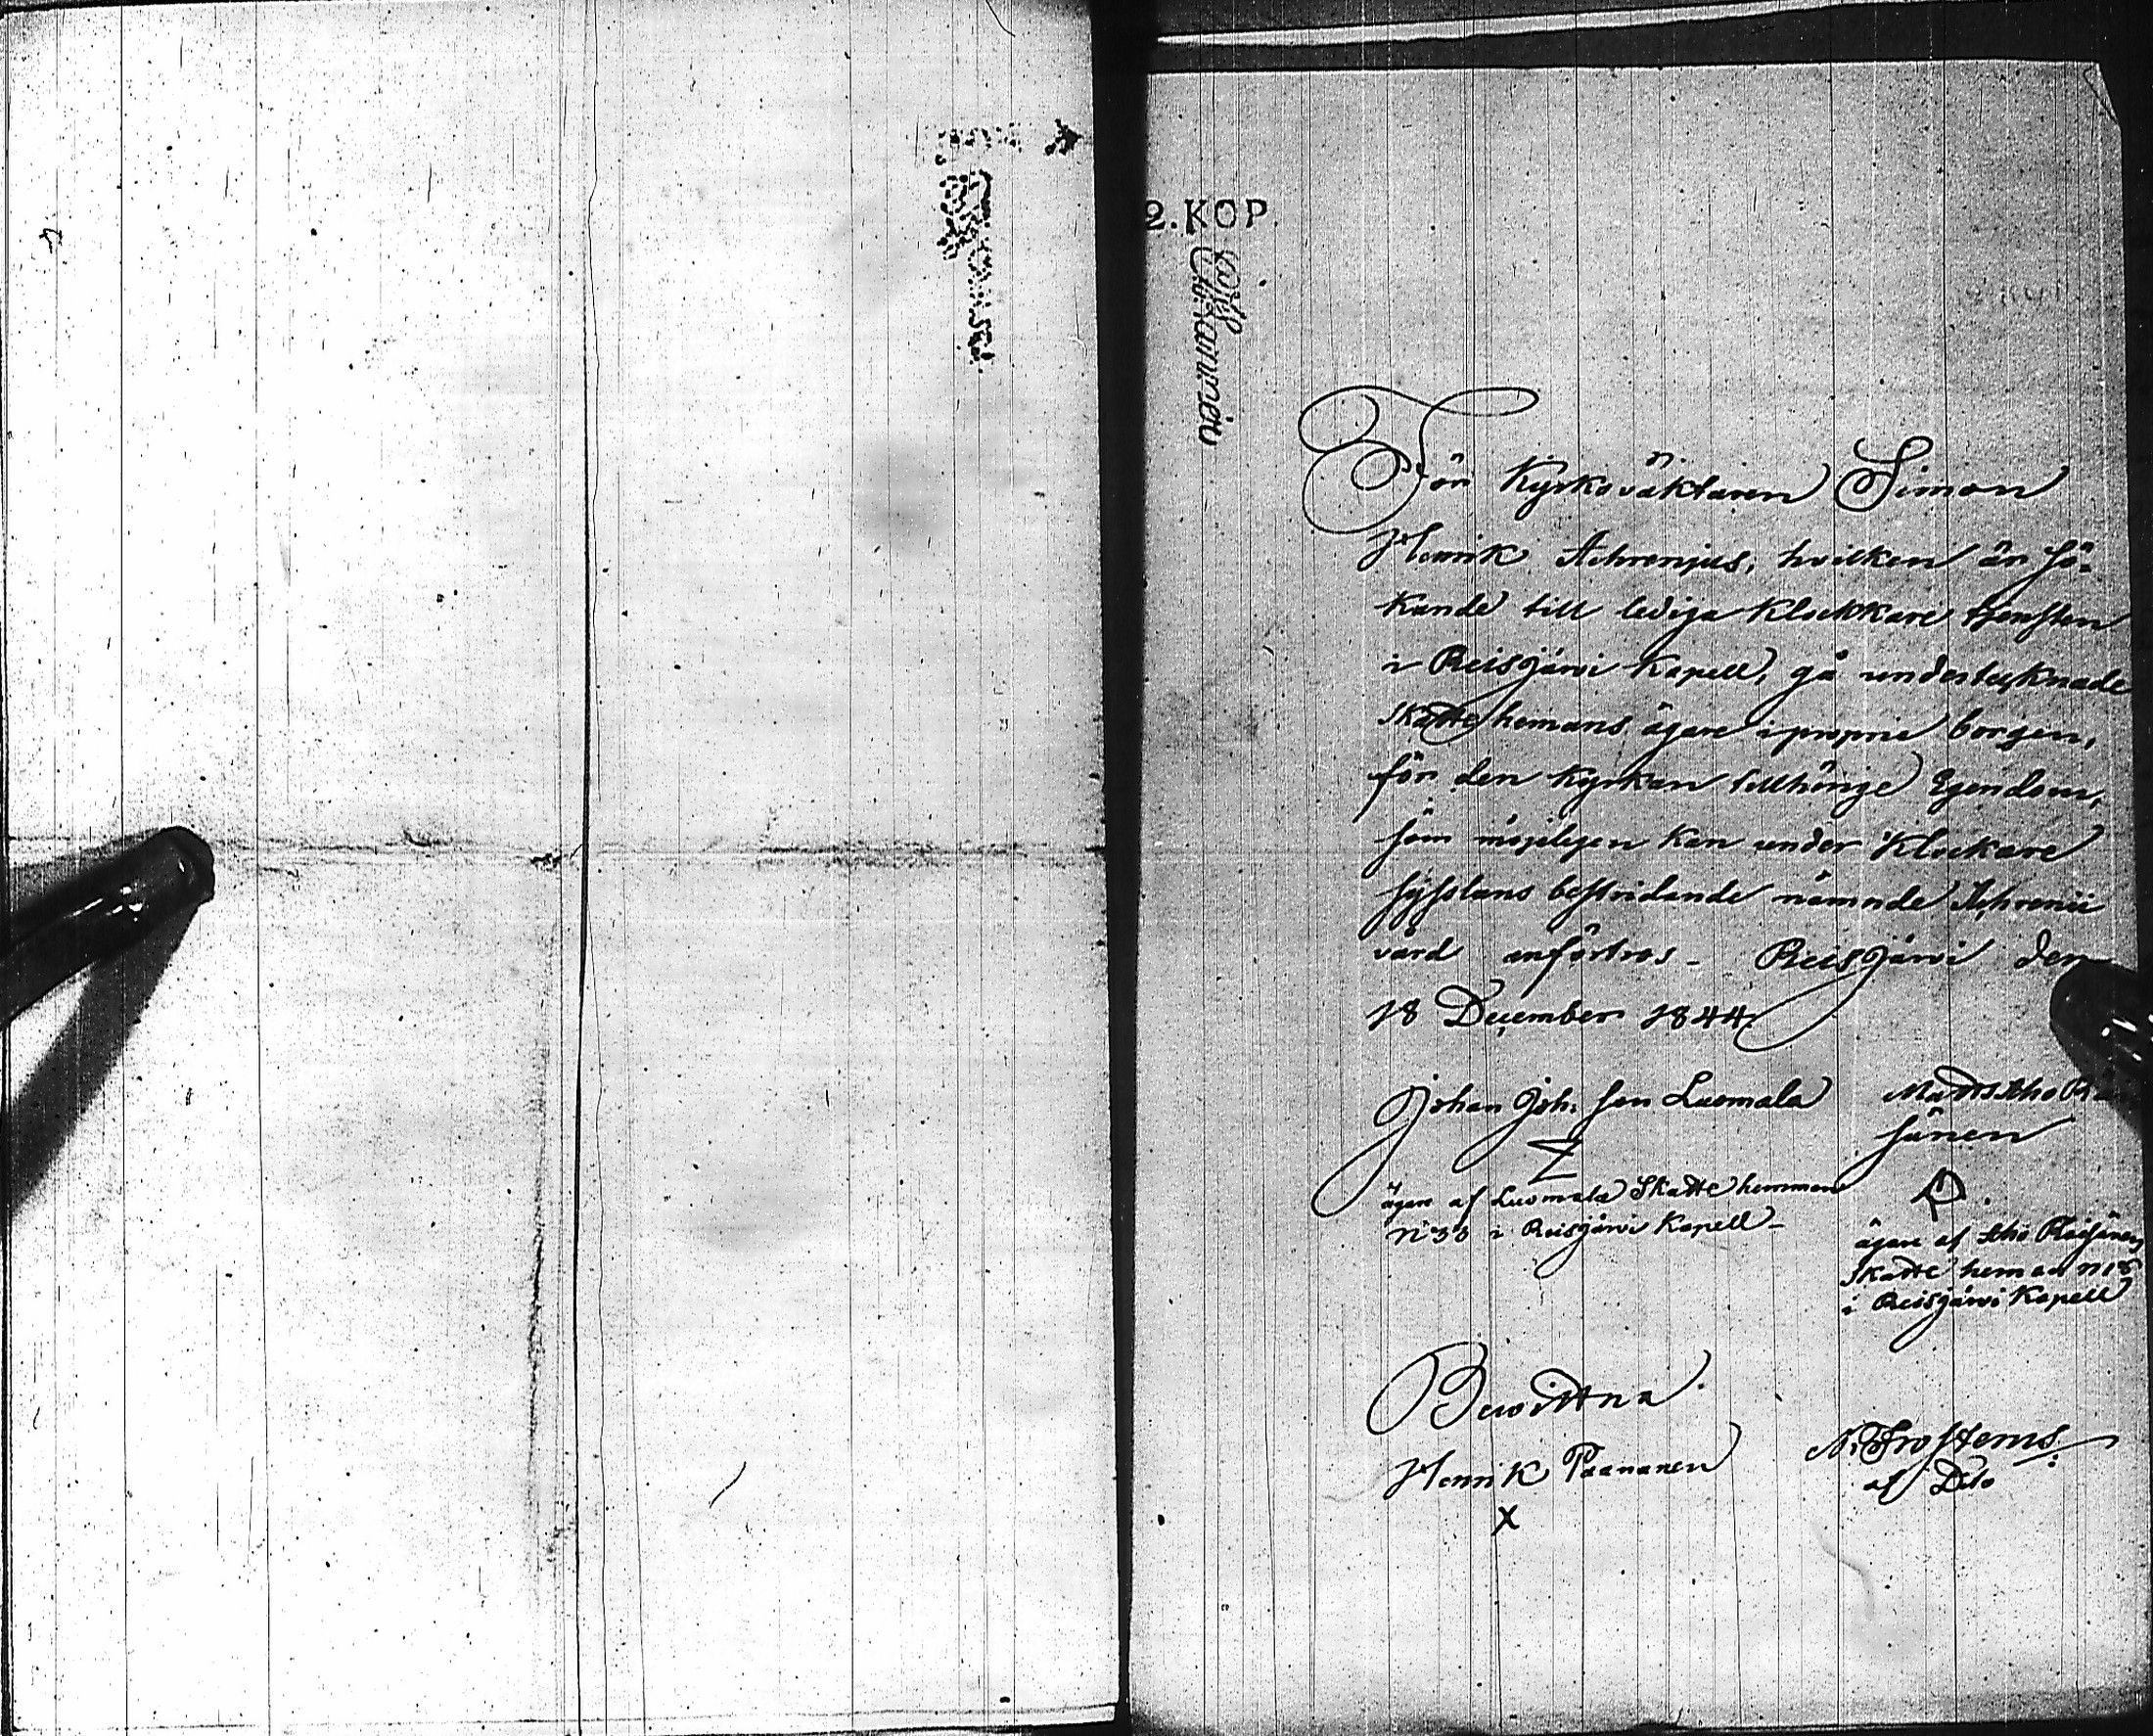 2.KOP
För Kyrkoväktaren Simon
Henrik Achrenjus, hvilken är sö-
kande till lediga Klockkare tjensten
i Reisjärvi Kapell, gå undertecknade
Skatte hemans ägare i proprie borgen,
för den Kyrkan tillhörige Egendom,
som möjeligen kan under Klockare
sysslans bestridande nämnde Achrenii
vård anförtros - Reisjärvi den
18 December 1844
Johan Joh. son Luomala
ägare af Luomala Skatte hemman
N:33 i Reisjärvi Kapell -
Matts Aho
sänen
ägare af Aho
Skatte heman N 18
i Reisjärvi Kapell
Bewittna
Henrik Paananen
X
N. Frostems
af Dito